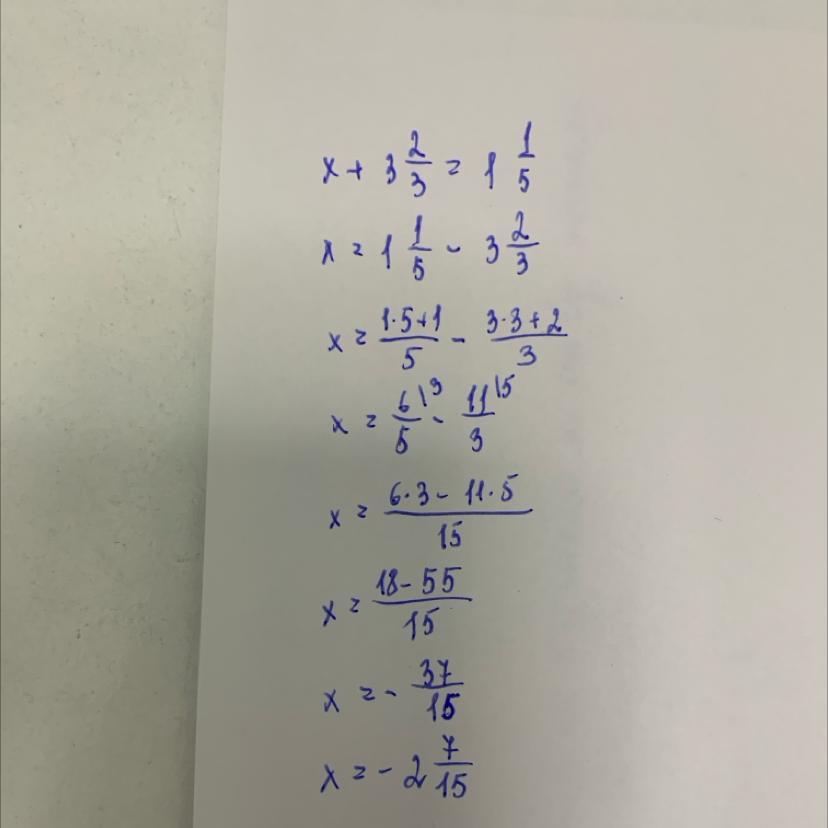 x + 3 2/3 = 1 1/5
x = 1 1/5 - 3 2/3
x = (1·5+1)/5 - (3·3+2)/3
x = 6\3/5 - 11\5/3
x = (6·3 - 11·5)/15
x = (18 - 55)/15
x = - 37/15
x = - 2 7/15